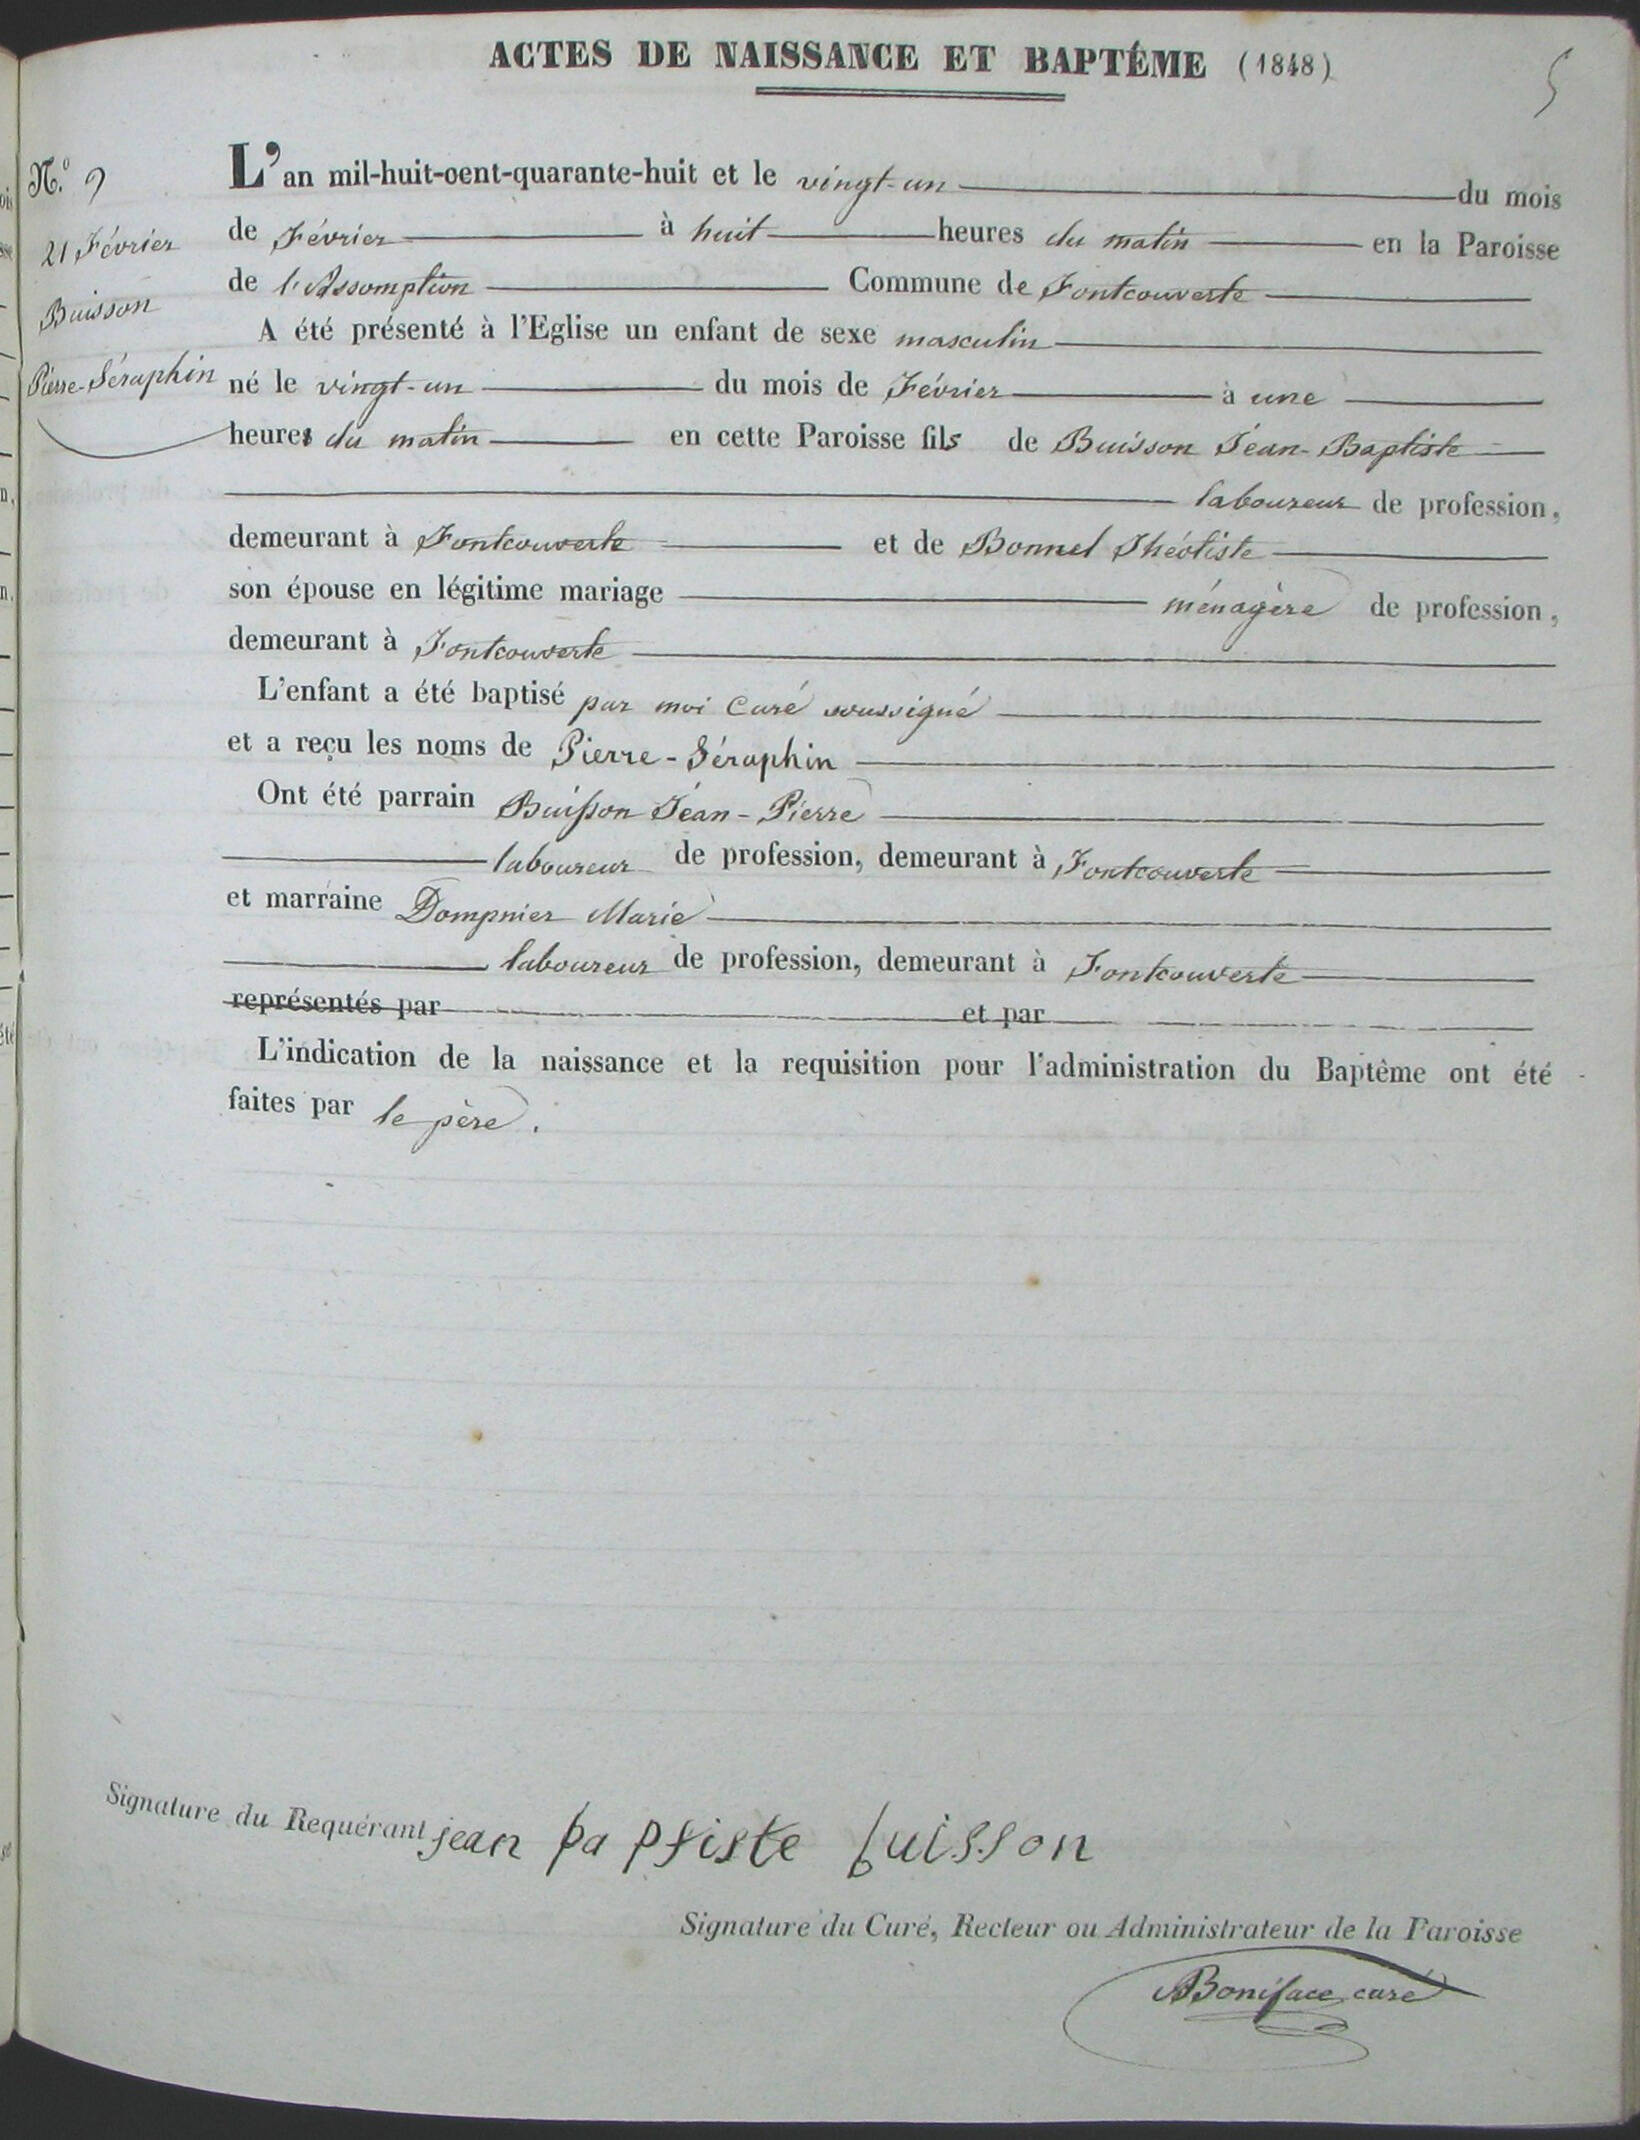 ACTES DE NAISSANCE ET BAPTÊME (1848)
5
N.º 9
21 Février
Buisson
Pierre-Séraphin
L'an mil-huit-cent-quarante-huit et le vingt-un du mois
de Février à huit heures du matin en la Paroisse
de l'Assomption Commune de Fontcouverte
A été présenté à l'Eglise un enfant de sexe masculin
né le vingt-un du mois de Février à une
heure du matin en cette Paroisse fils de Buisson Jean-Baptiste
laboureur de profession,
demeurant à Fontcouverte et de Bonnel Théotiste
son épouse en légitime mariage ménagère de profession,
demeurant à Fontcouverte
L'enfant a été baptisé par moi Curé soussigné
et a reçu les noms de Pierre-Séraphin
Ont été parrain Buisson Jean-Pierre
laboureur de profession, demeurant à Fontcouverte
et marraine Dompnier Marie
laboureur de profession, demeurant à Fontcouverte
représentés par et par
L'indication de la naissance et la requisition pour l'administration du Baptême ont été
faites par le père.
Signature du Requérant jean baptiste buisson
Signature du Curé, Recteur ou Administrateur de la Paroisse
Boniface curé